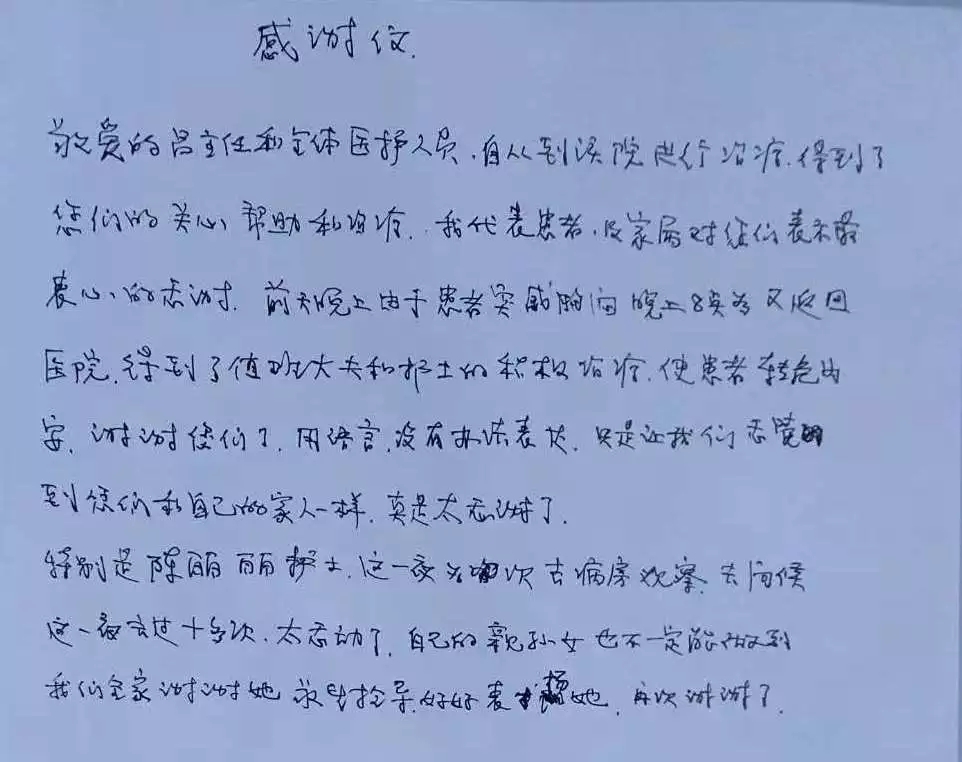 感谢信.
敬爱的吕主任和全体医护人员,自从到该院进行治疗.得到了
您们的关心,帮助和治疗.我代表患者,及家属对您们表示最
衷心的感谢.前天晚上由于患者突感胸闷晚上8点多又返回
医院,得到了值班大夫和护士的积极治疗.使患者转危为
安,谢谢您们了,用语言,没有办法表达,只是让我们感觉
到您们和自己的家人一样.真是太感谢了.
特别是陈丽丽护士,这一夜多次去病房观察,去问候
这一夜去过十多次.太感动了,自己的亲孙女也不一定能做到
我们全家谢谢她 领导好好表扬她,再次谢谢了.